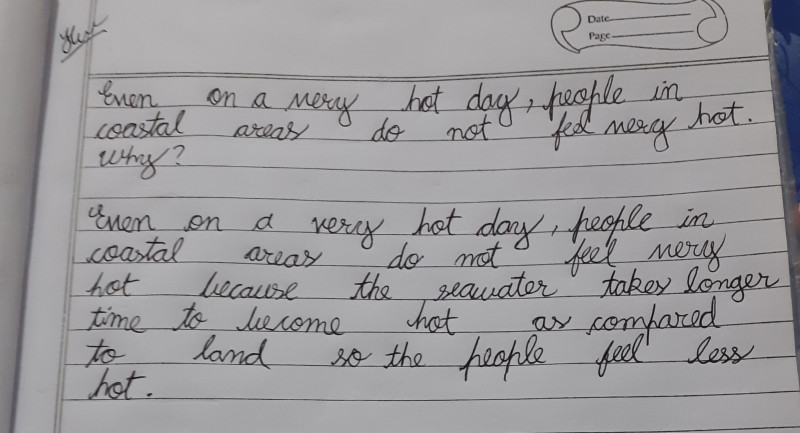 Date
Page
Even on a very hot day, people in
coastal areas do not feel very hot.
Why?
Even on a very hot day, people in
coastal areas do not feel very
hot because the seawater takes longer
time to become hot as compared
to land so the people feel less
hot.